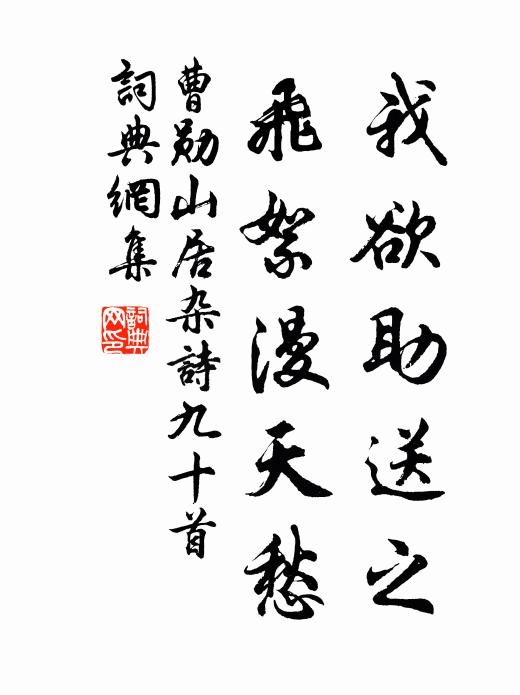 我欲助送之
飛絮漫天愁
曹勛山居杂詩九十首
詞典網集
詞典网印